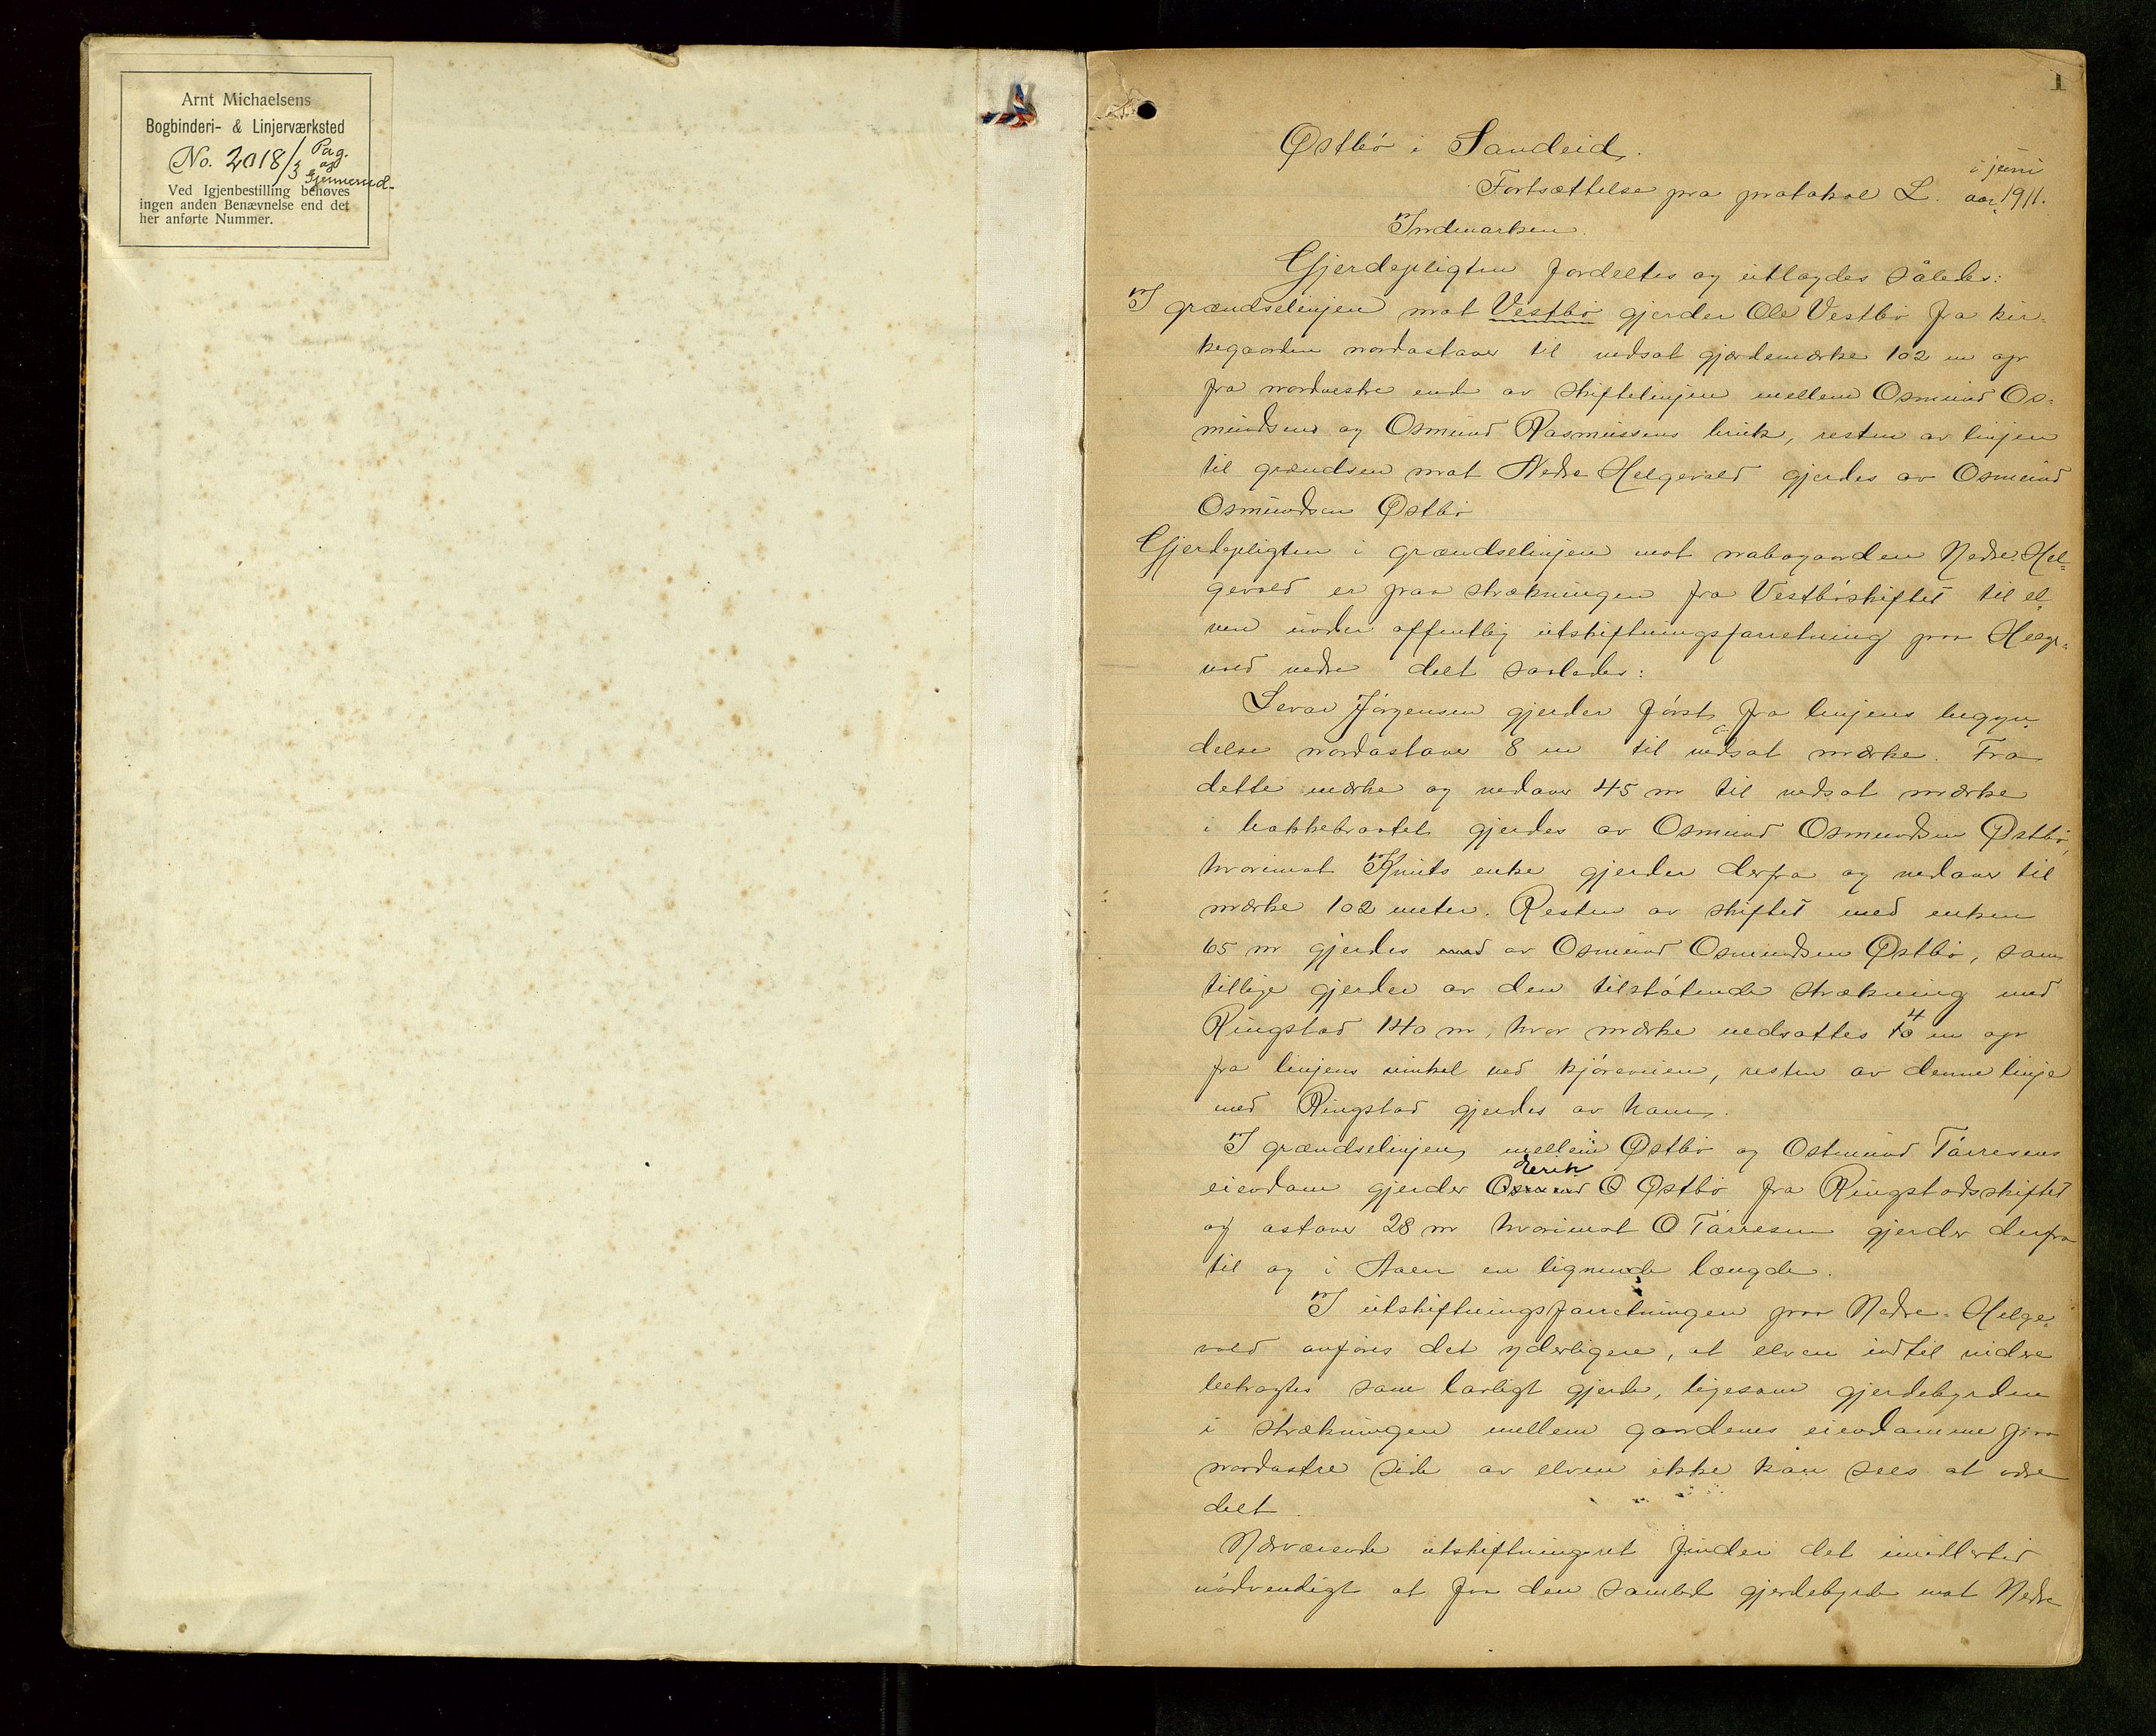 Arnt Michaelsens
Bogbinderi- & Linjerværksted
No. 2018/3 Pag.
og
Gjennemsed-
Ved Igjenbestilling behøves
ingen anden Benævnelse end det
her anførte Nummer.
1
Østbö i Sandeid.
i juni
Fortsættelse fra protokol L. aar 1911.
Indmarken.
Gjerdepligten fordeltes og utlagdes således:
I grændselinjen mot Vestbö gjerder Ole Vestbö fra kir-
kegaarden nordastover til nedsat gjærdemærke 102 m op
fra nordvestre ende av skiftelinjen mellem Osmund Os-
mundsens og Osmund Rasmussens bruk, resten av linjen
til grændsen mot Nedre Helgevold gjerdes av Osmund
Osmundsen Østbö
Gjerdepligten i grændselinjen mot nabogaarden Nedre Hel-
gevold er paa strækningen fra Vestböskiftet til el-
ven under offentlig utskiftningsforretning paa Helge-
vold nedre delt saaledes:
Sevar Jörgensen gjerder först fra linjens begyn-
delse nordastover 8 m til nedsat mærke. Fra
dette mærke og nedover 45 m til nedsat mærke
i bakkebrattet gjerdes av Osmund Osmundsen Østbö,
hvorimot Knuts enke gjerder derfra og nedover til
mærke 102 meter. Resten av skiftet med enken
65 m gjerdes med av Osmund Osmundsen Østbö, som
tillige gjerder av den tilstötende strækning med
Ringstad 140 m, hvor mærke nedsattes 40 m op
fra linjens vinkel ved kjöreveien, resten av denne linje
med Ringstad gjerdes av ham.
I grændselinjen mellem Østbö og Ostmund Törresens
eiendom gjerder Osmund Erik O Østbö fra Ringstadskiftet
og astover 28 m hvorimot O Törresen gjerder derfra
til og i Aaen en lignende længde.
I utskiftningsforretningen paa Nedre-Helge-
vold anföres det yderligere, at elven indtil videre
betragtes som lovligt gjerde, ligesom gjerdebyrden
i strækningen mellem gaardenes eiendomme paa
nordastre side av elven ikke kan sees at være
delt.
Nærværende utskiftningsret finder det imidlertid
nödvendigt at faa den samlede gjerdebyrde mot Nedre